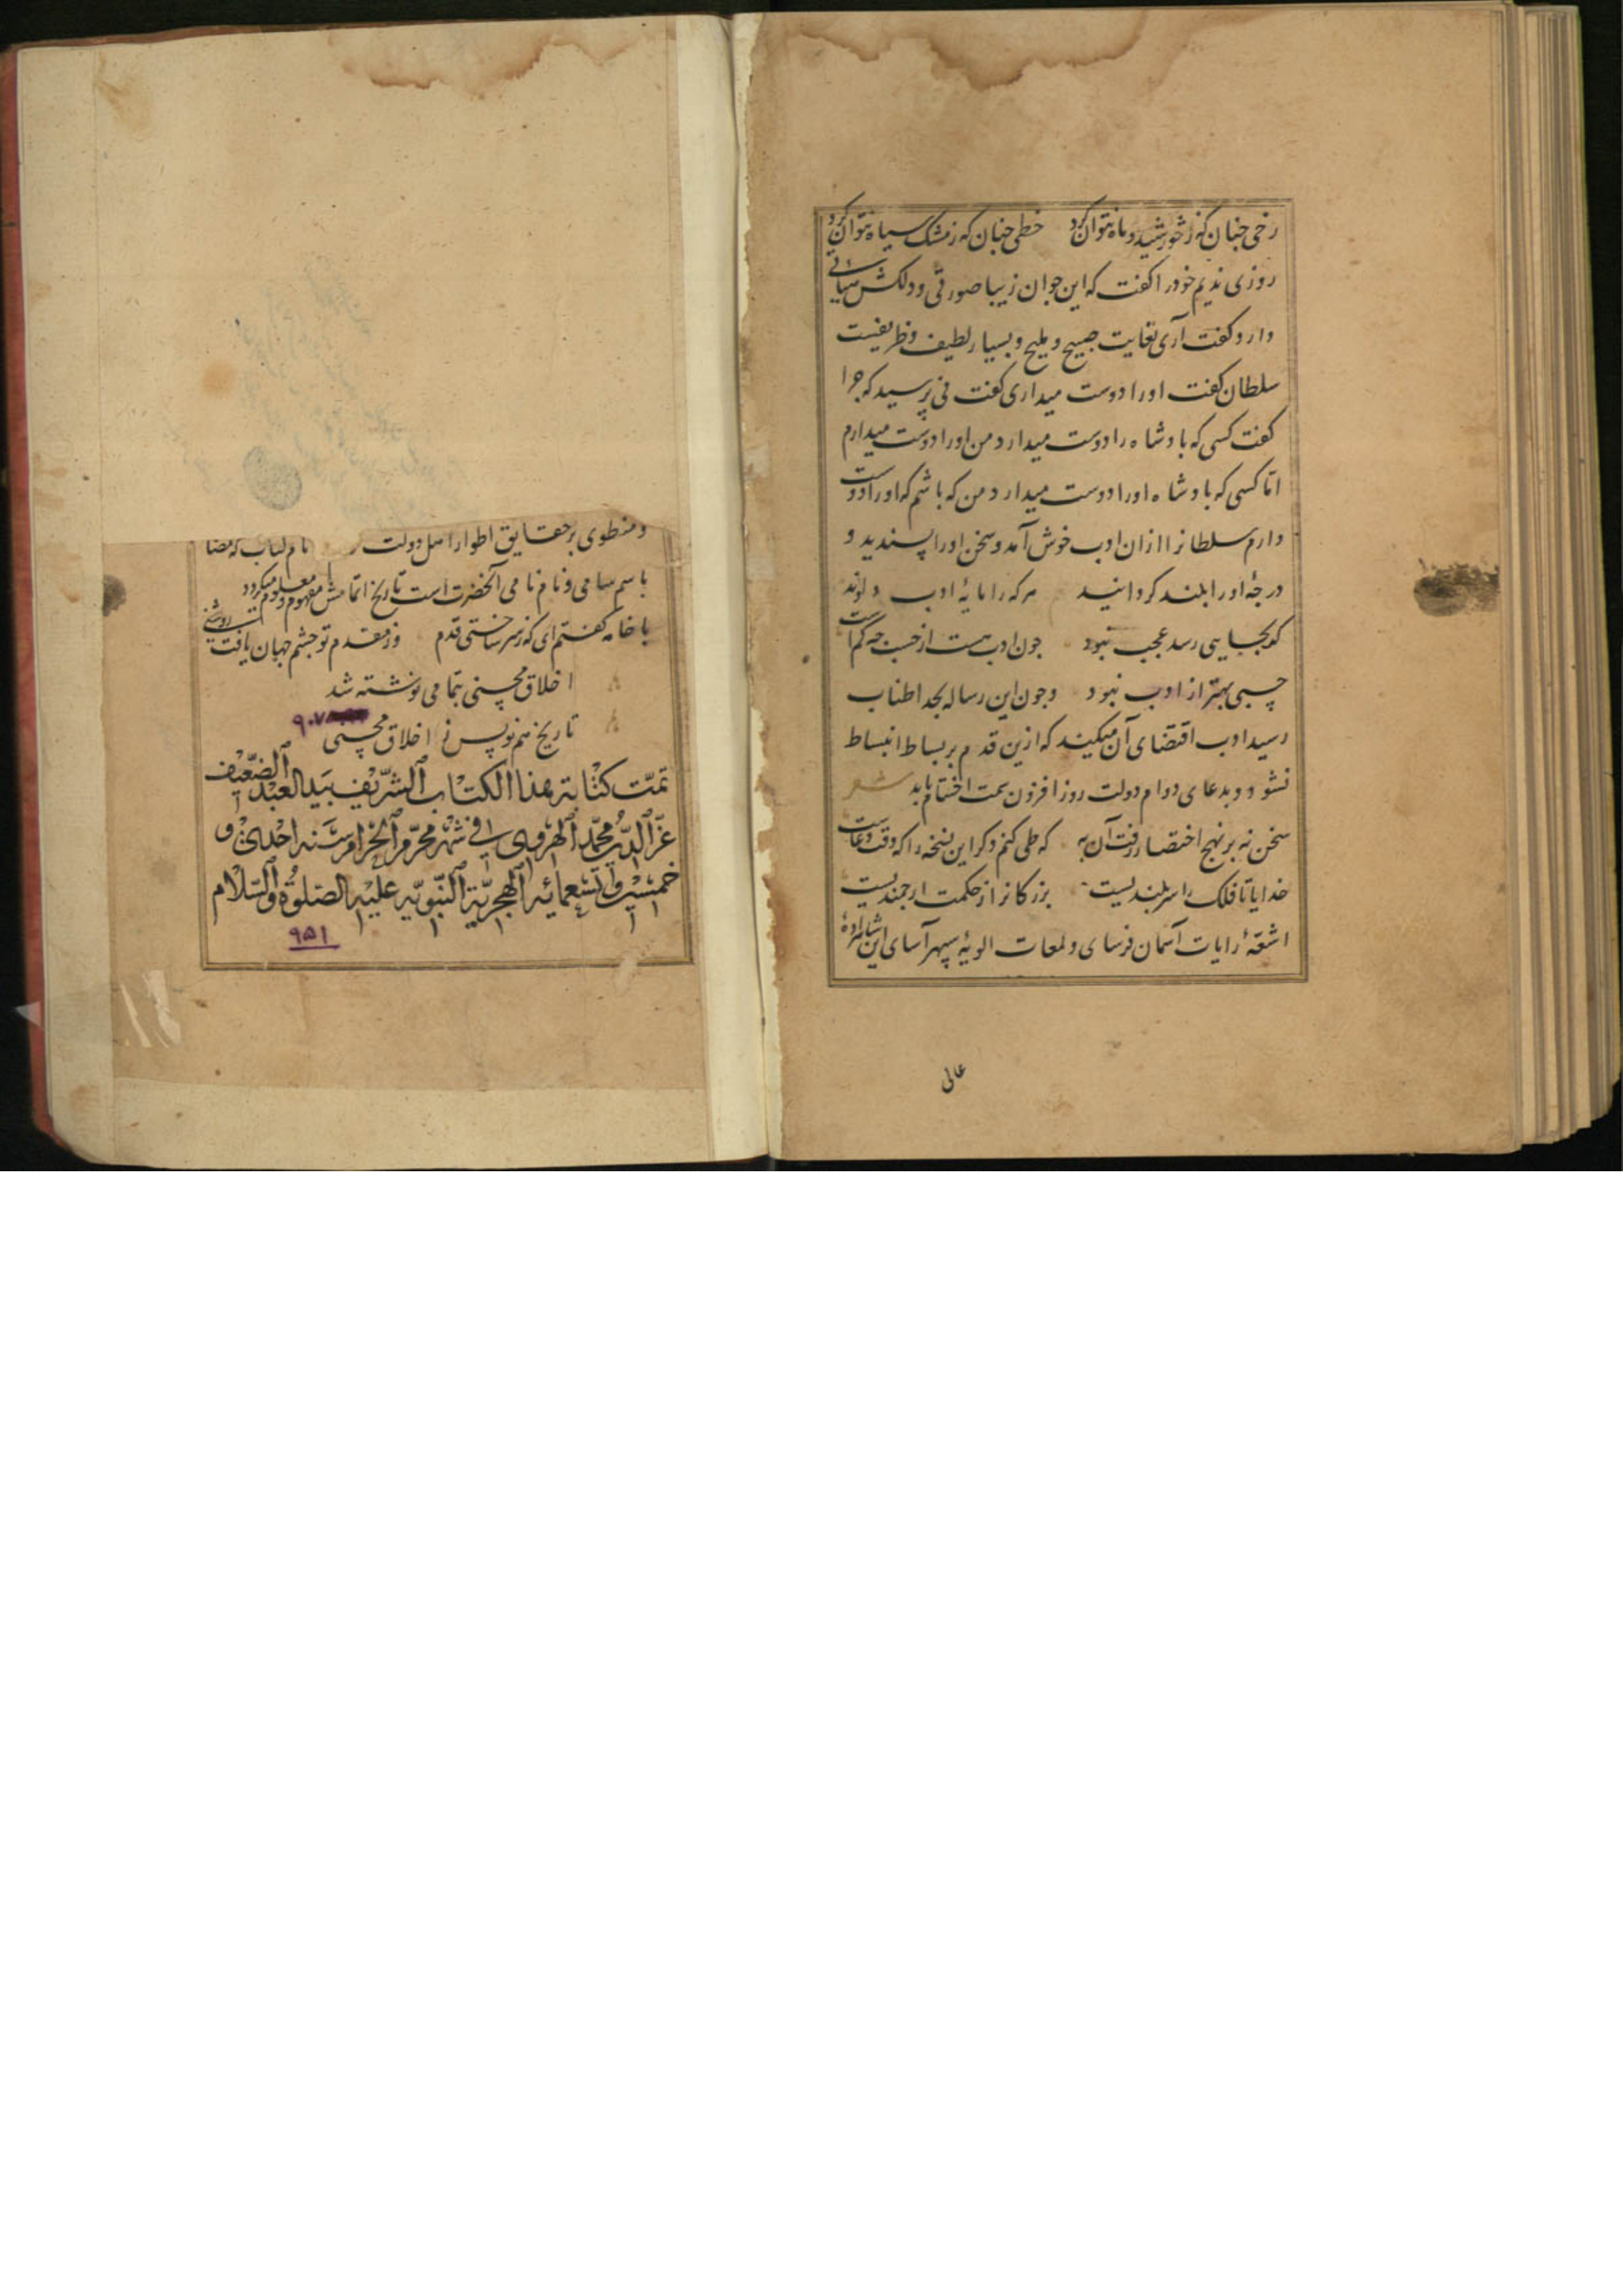 رخی چنان که ز خورشید و ماه نتوان کرد خطی چنان که ز مشک سیاه نتوان کرد
روزی ندیم خود را کفت که این جوان زیبا صورتی و دلکش
دارد کفت آری بغایت صبیح و ملیح و بسیار لطیف و ظریفست
سلطان کفت او را دوست میداری کفت نی پرسید که چرا
کفت کسی که پادشاه را دوست میدارد من او را دوست میدارم
اما کسی که پادشاه او را دوست میدارد من که باشم که او را دوست
دارم سلطانرا ازان ادب خوش آمد و سخن او را پسندید و
درجهٔ او را بلند کردانید هر که را مایهٔ ادب دادند
کر بجایی رسد عجب نبود چون ادب هست از حسب چه کم است
حسبی بهتر از ادب نبود و چون این رساله بحد اطناب
رسید ادب اقتضای آن میکند که ازین قدم بر بساط انبساط
نشود و بدعای دوام دولت روز افزون سمت اختتام یابد شعر
سخن نه بر نهج اختصار رفت آن به که طی کنم دکر این نسخه را که وقت دعاست
خدایا تا فلک را سربلندیست بزرکانرا ز حکمت ارجمندیست
اشعّهٔ رایات آسمان فرسای و لمعات الویهٔ سپهر آسای این شاهزادهٔ
عالی
و منطوی بر حقایق اطوار اهل دولت نام کتاب که مضا
باسم سامی و نام نامی آنحضرت است تاریخ اتمامش مفهوم و معلوم میکردد
با خامه کفتم ای که ز سر ساختی قدم وز مقدم تو چشم جهان یافت روشنی
اخلاق محسنی بتمامی نوشته شد
تاریخ هم نویس ز اخلاق محسنی ۹۰۷
تمّت کتابته هذا الکتاب الشریف بید العبد الضعیف
عزّ الدین محمّد الهروی فی شهر محرّم الحرام سنه احدی و
خمسین و تسعمائه الهجریّة النّبویّه علیه الصّلوة والسّلام
۹۵۱